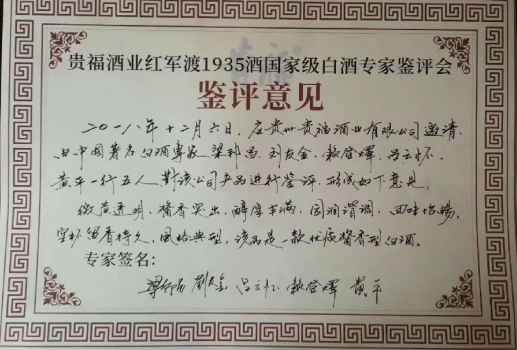 贵福酒业红军渡1935酒国家级白酒专家鉴评会
鉴评意见
二〇一八年十二月六日，应贵州贵福酒业有限公司邀请，
由中国著名白酒专家梁邦昌、刘友金、敖登辉、吕云怀、
黄平一行五人，对该公司产品进行鉴评，形成如下意见。
微黄透明，酱香突出，醇厚丰满，圆润谐调，回味怡畅，
空杯留香持久，风格典型，该品是一款优质酱香型白酒。
专家签名：
梁邦昌 劉友金 吕云怀 敖登辉 黄平